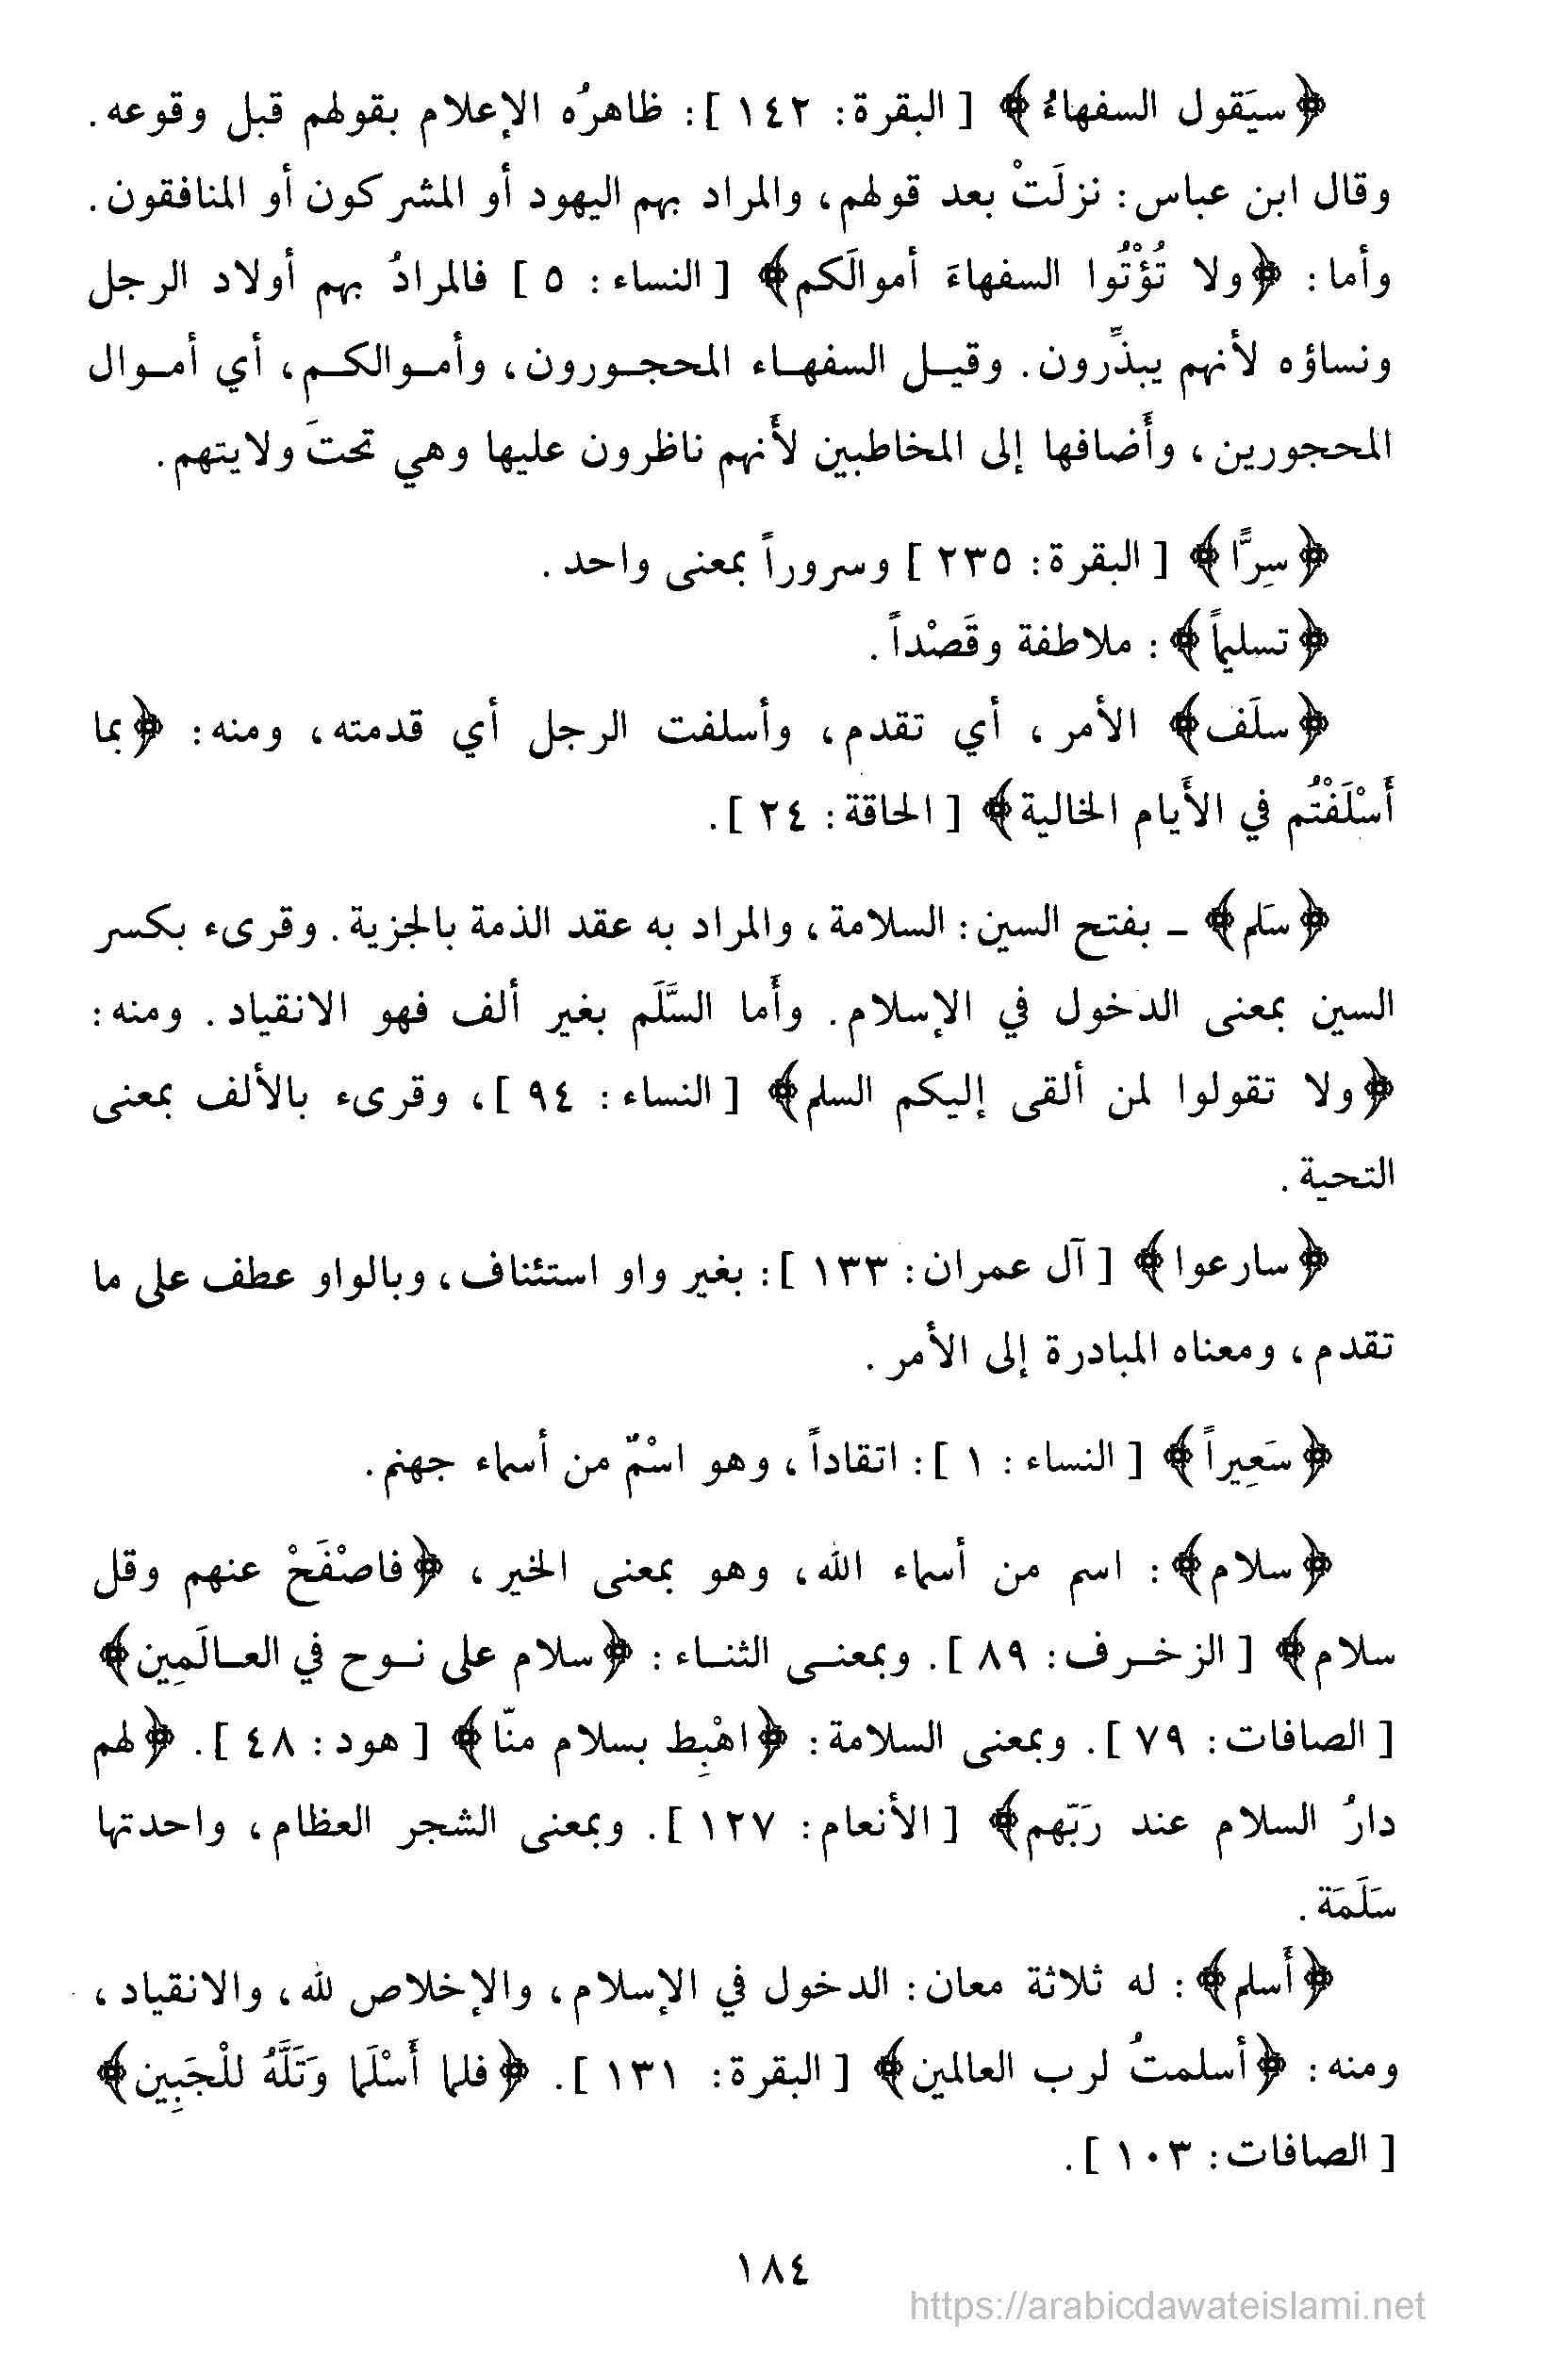 ﴿سيَقول السفهاءُ﴾ [ البقرة: ١٤٢ ]: ظاهرُه الإعلام بقولهم قبل وقوعه.
وقال ابن عباس: نزلَتْ بعد قولهم، والمراد بهم اليهود أو المشركون أو المنافقون.
وأما: ﴿ولا تُؤْتُوا السفهاءَ أموالَكم﴾ [ النساء: ٥ ] فالمرادُ بهم أولاد الرجل
ونساؤه لأنهم يبذِّرون. وقيـل السفهـاء المحجـورون، وأمـوالكـم، أي أمـوال
المحجورين، وأَضافها إلى المخاطبين لأَنهم ناظرون عليها وهي تحتَ ولايتهم.
﴿سِرًّا﴾ [ البقرة: ٢٣٥ ] وسروراً بمعنى واحد.
﴿تسليماً﴾: ملاطفة وقَصْداً.
﴿سلَف﴾ الأمر، أي تقدم، وأسلفت الرجل أي قدمته، ومنه: ﴿بما
أَسْلَفْتُم في الأَيام الخالية﴾ [ الحاقة: ٢٤ ].
﴿سَلم﴾ ـ بفتح السين: السلامة، والمراد به عقد الذمة بالجزية. وقرىء بكسر
السين بمعنى الدخول في الإسلام. وأَما السَّلَم بغير ألف فهو الانقياد. ومنه:
﴿ولا تقولوا لمن ألقى إليكم السلم﴾ [ النساء: ٩٤ ]، وقرىء بالألف بمعنى
التحية.
﴿سارعوا﴾ [ آل عمران: ١٣٣ ]: بغير واو استئناف، وبالواو عطف على ما
تقدم، ومعناه المبادرة إلى الأمر.
﴿سَعِيراً﴾ [ النساء: ١ ]: اتقاداً، وهو اسْمٌ من أسماء جهنم.
﴿سلام﴾: اسم من أسماء الله، وهو بمعنى الخير، ﴿فاصْفَحْ عنهم وقل
سلام﴾ [ الزخـرف: ٨٩ ]. وبمعنـى الثنـاء: ﴿سلام على نـوح في العـالَمِين﴾
[ الصافات: ٧٩ ]. وبمعنى السلامة: ﴿اهْبِط بسلام منّا﴾ [ هود: ٤٨ ]. ﴿لهم
دارُ السلام عند رَبّهم﴾ [ الأنعام: ١٢٧ ]. وبمعنى الشجر العظام، واحدتها
سَلَمَة.
﴿أَسلم﴾: له ثلاثة معان: الدخول في الإسلام، والإخلاص لله، والانقياد،
ومنه: ﴿أسلمتُ لرب العالمين﴾ [ البقرة: ١٣١ ]. ﴿فلما أَسْلَما وَتَلَّهُ للْجَبِين﴾
[ الصافات: ١٠٣ ].
١٨٤
https://arabicdawateislami.net